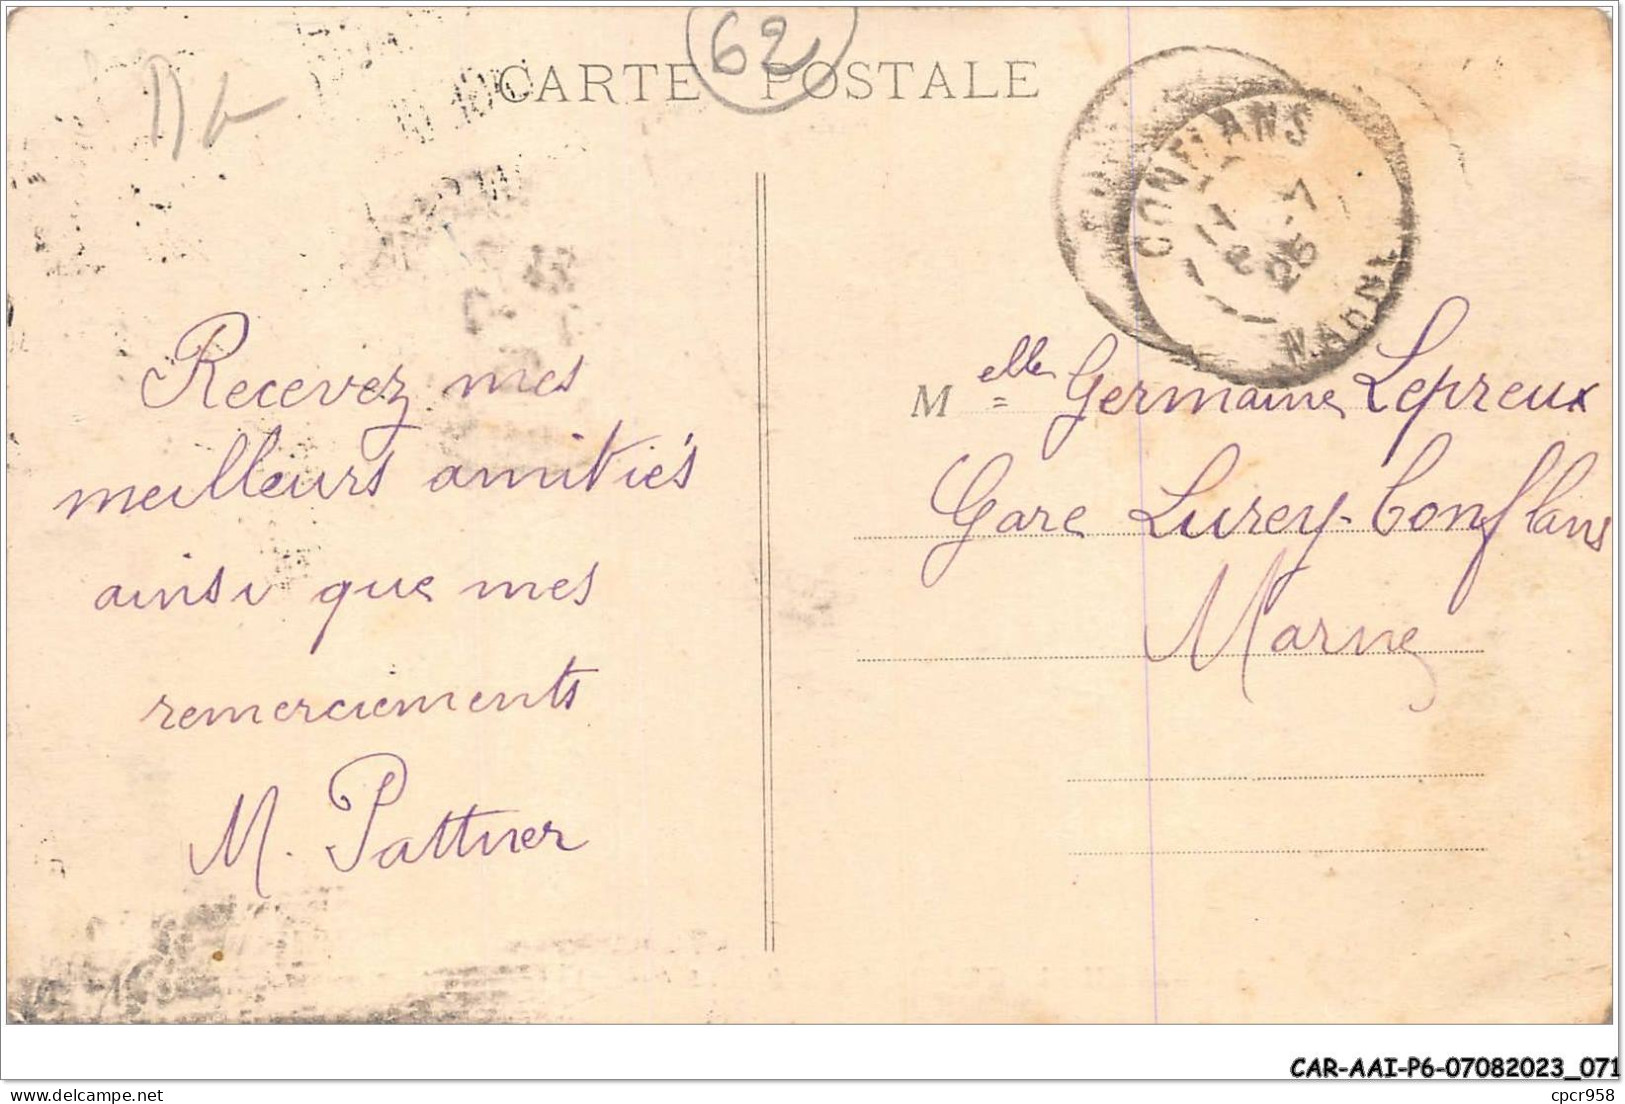 CARTE POSTALE
62
CONFLANS
MARNE
Recevez mes
meilleurs amitiés
ainsi que mes
remerciements
M. Pattner
Melle Germaine Lepreux
Gare Lurey-Conflans
Marne
CAR-AAI-P6-07082023_071
cpcr958